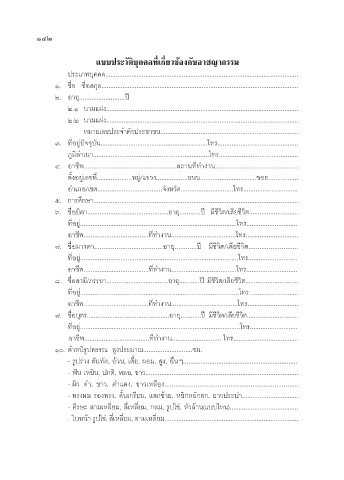 ๑๘๒
แบบประวัติบุคคลที่เกี่ยวข้องกับอาชญากรรม
ประเภทบุคคล
๑. ชื่อ ชื่อสกุล
๒. อายุ ปี
๒.๑ นามแฝง
๒.๒ นามแฝง
หมายเลขประจำตัวประชาชน
๓. ที่อยู่ปัจจุบัน โทร
ภูมิลำเนา โทร
๔. อาชีพ สถานที่ทำงาน
ตั้งอยู่เลขที่ หมู่/แขวง ถนน ซอย
อำเภอ/เขต จังหวัด โทร
๕. การศึกษา
๖. ชื่อบิดา อายุ ปี มีชีวิต/เสียชีวิต
ที่อยู่ โทร
อาชีพ ที่ทำงาน โทร
๗. ชื่อมารดา อายุ ปี มีชีวิต/เสียชีวิต
ที่อยู่ โทร
อาชีพ ที่ทำงาน โทร
๘. ชื่อสามี/ภรรยา อายุ ปี มีชีวิต/เสียชีวิต
ที่อยู่ โทร
อาชีพ ที่ทำงาน โทร
๙. ชื่อบุตร อายุ ปี มีชีวิต/เสียชีวิต
ที่อยู่ โทร
อาชีพ ที่ทำงาน โทร
๑๐. ตำหนิรูปพรรณ สูงประมาณ ซม.
- รูปร่าง สันทัด, อ้วน, เตี้ย, ผอม, สูง, อื่นๆ
- ฟัน เหยิน, ปกติ, หลอ, ขาว
- ผิว ดำ, ขาว, ดำแดง, ขาวเหลือง
- ทรงผม รองทรง, สั้นเกรียน, แสกข้าง, หยิกหยักศก, ยาวประบ่า
- ศีรษะ สามเหลี่ยม, สี่เหลี่ยม, กลม, รูปไข่, หัวล้าน(แบบไหน)
- ใบหน้า รูปไข่, สี่เหลี่ยม, สามเหลี่ยม